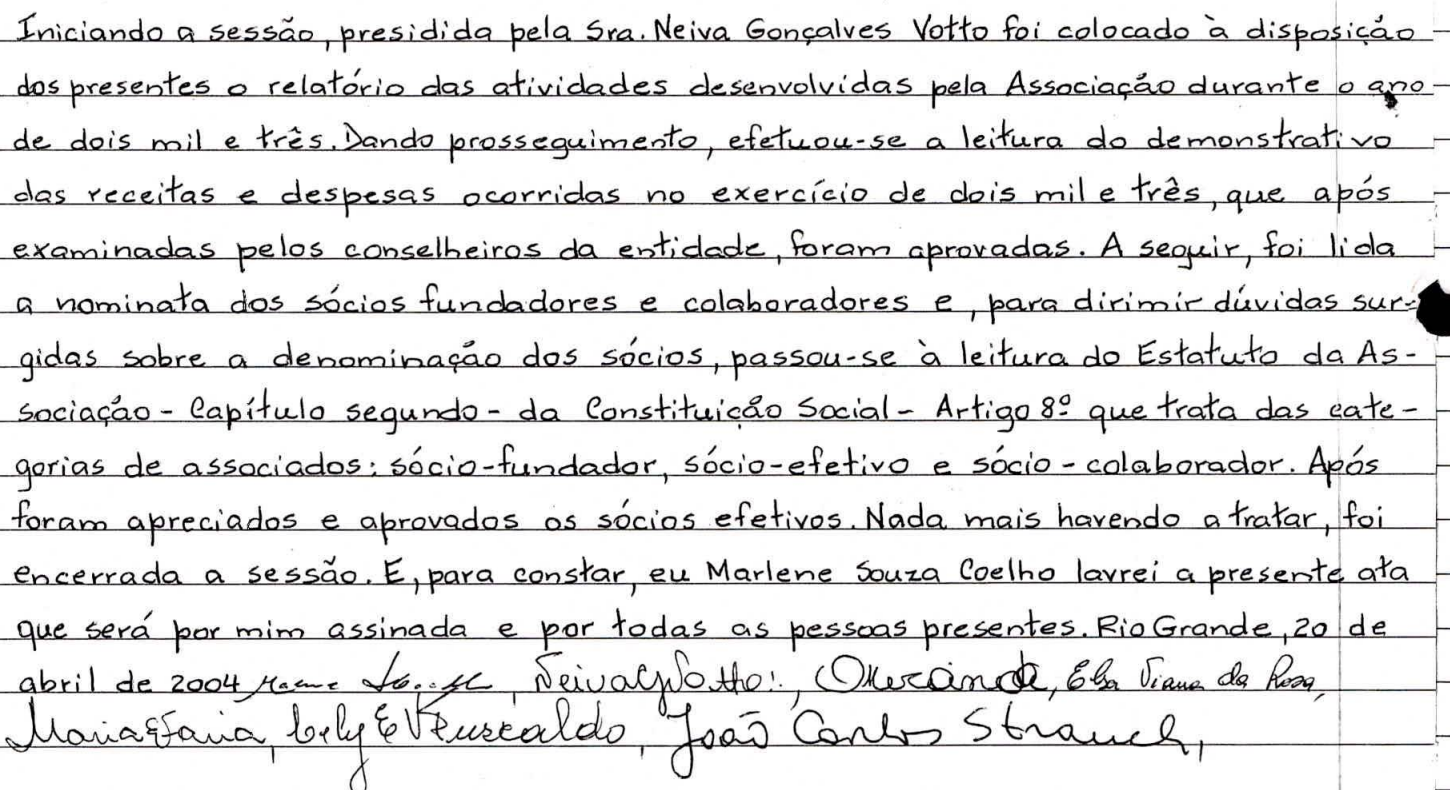 Iniciando a sessão, presidida pela Sra. Neiva Gonçalves Votto foi colocado à disposição
dos presentes o relatório das atividades desenvolvidas pela Associação durante o ano
de dois mil e três. Dando prosseguimento, efetuou-se a leitura do demonstrativo
das receitas e despesas ocorridas no exercício de dois mil e três, que após
examinadas pelos conselheiros da entidade, foram aprovadas. A seguir, foi lida
a nominata dos sócios fundadores e colaboradores e, para dirimir dúvidas sur-
gidas sobre a denominação dos sócios, passou-se à leitura do Estatuto da As-
sociação - Capítulo segundo - da Constituição Social - Artigo 8º que trata das cate-
gorias de associados: sócio-fundador, sócio-efetivo e sócio-colaborador. Após
foram apreciados e aprovados os sócios efetivos. Nada mais havendo a tratar, foi
encerrada a sessão. E, para constar, eu Marlene Souza Coelho lavrei a presente ata
que será por mim assinada e por todas as pessoas presentes. Rio Grande, 20 de
abril de 2004, Elsa Viana da Rosa,
João Carlos Strauch,